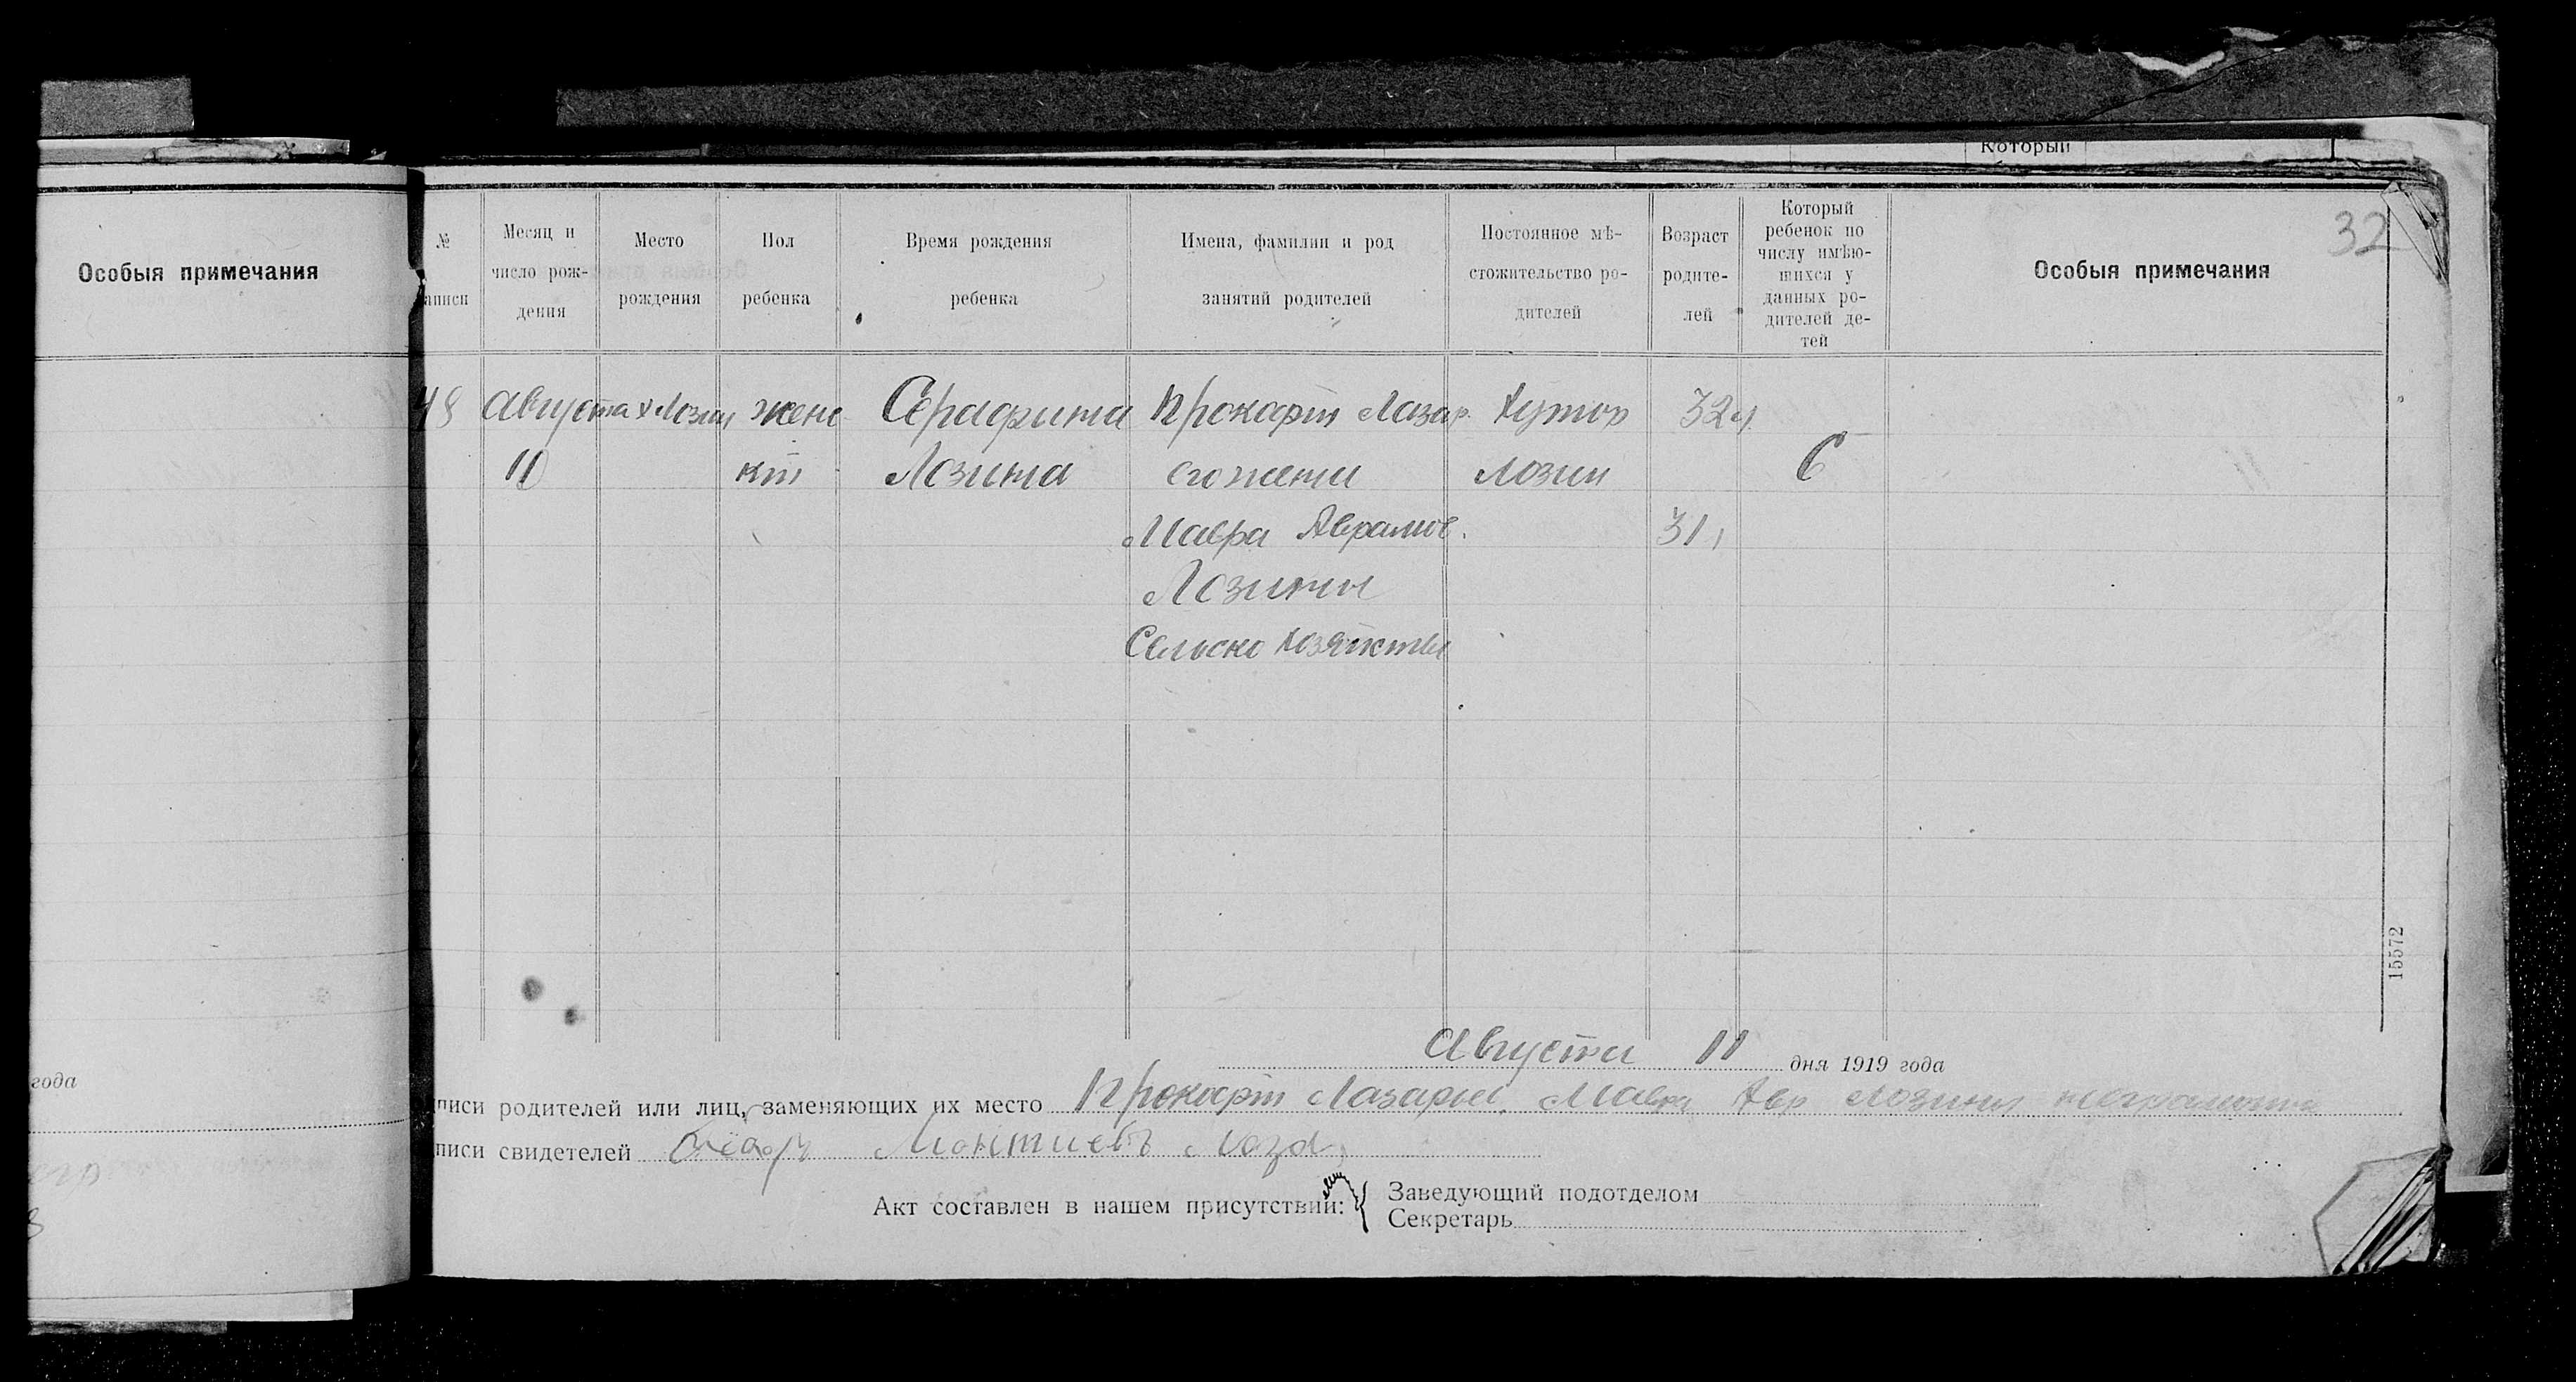 Который
32
Особыя примечания
№ аписи
Месяц и число рож- дения
Место рождения
Пол ребенка
Время рождения ребенка
Имена, фамилии и род занятий родителей
Постоянное мѣ- стожительство ро- дителей
Возраст родите- лей
Который ребенок по числу имѣю- щихся у данных ро- дителей де- тей
Особыя примечания
48 Августа х Лозин жене Серафима Прокофт Лазар. Хутор 32 г.
11 кт Лозина его жена Лозин 6
Мавра Аврамов. 31
Лозины
Сельско хозяйства
15572
Августа 11 дня 1919 года
года
писи родителей или лиц, заменяющих их место Прокофт Лазарев. Мавра Авр Лозины неграмотны
писи свидетелей
Акт составлен в нашем присутствии: Заведующий подотделом
Секретарь